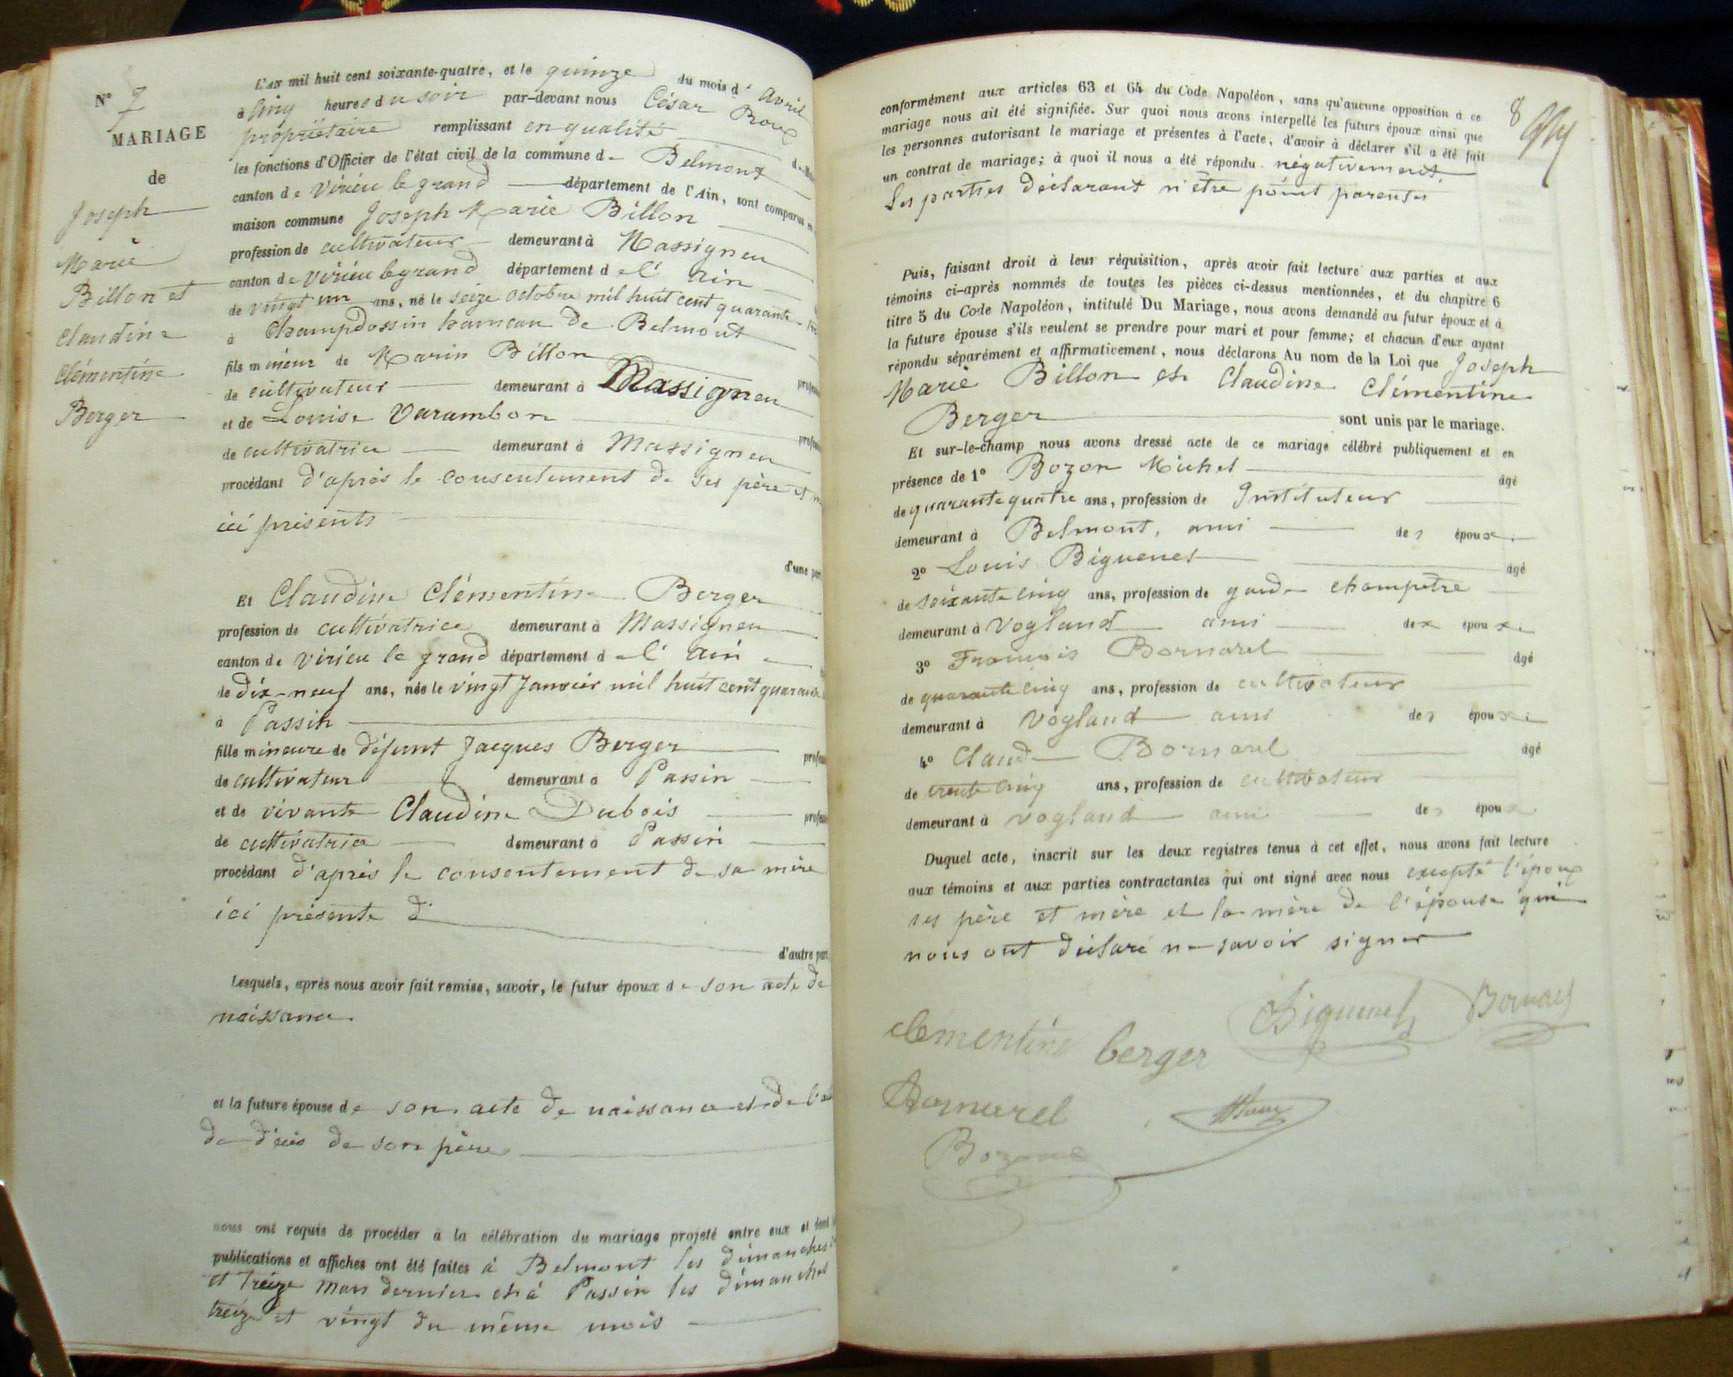 N° 7
MARIAGE
de
Joseph
Marie
Billon et
Claudine
Clémentine
Berger
L'an mil huit cent soixante-quatre, et le quinze du mois d'avril
à cinq heures du soir par-devant nous César Roux
propriétaire remplissant en qualité
les fonctions d'Officier de l'état civil de la commune de Belmont
canton de Virieu le grand département de l'Ain, sont comparus en
maison commune Joseph Marie Billon
profession de cultivateur demeurant à Massigneu
canton de Virieu le grand département de l'Ain
de vingt un ans, né le seize octobre mil huit cent quarante
à Champdossin hameau de Belmont
fils mineur de Marin Billon
de cultivateur demeurant à Massigneu
et de Louise Varambon
de cultivatrice demeurant à Massigneu
procédant d'après le consentement de ses père et
ici présents
d'une part
Et Claudine Clémentine Berger
profession de cultivatrice demeurant à Massigneu
canton de Virieu le grand département de l'Ain
de dix-neuf ans, née le vingt Janvier mil huit cent quarante
à Passin
fille mineure de défunt Jacques Berger
de cultivateur demeurant à Passin
et de vivante Claudine Dubois
de cultivatrice demeurant à Passin
procédant d'après le consentement de sa mère
ici présente d'
d'autre part
Lesquels, après nous avoir fait remise, savoir, le futur époux de son acte de
naissance.
et la future épouse de son acte de naissance et de l'
de décès de son père
nous ont requis de procéder à la célébration du mariage projeté entre eux et dont
publications et affiches ont été faites à Belmont les dimanches
et treize mars dernier et à Passin les dimanches
treize et vingt du même mois
8
conformément aux articles 63 et 64 du Code Napoléon, sans qu'aucune opposition à ce
mariage nous ait été signifiée. Sur quoi nous avons interpellé les futurs époux ainsi que
les personnes autorisant le mariage et présentes à l'acte, d'avoir à déclarer s'il a été fait
un contrat de mariage; à quoi il nous a été répondu négativement.
Les parties déclarant n'être point parentes
Puis, faisant droit à leur réquisition, après avoir fait lecture aux parties et aux
témoins ci-après nommés de toutes les pièces ci-dessus mentionnées, et du chapitre 6
titre 5 du Code Napoléon, intitulé Du Mariage, nous avons demandé au futur époux et à
la future épouse s'ils veulent se prendre pour mari et pour femme; et chacun d'eux ayant
répondu séparément et affirmativement, nous déclarons Au nom de la Loi que Joseph
Marie Billon et Claudine Clémentine
Berger sont unis par le mariage.
Et sur-le-champ nous avons dressé acte de ce mariage célébré publiquement et en
présence de 1° Bozon Michel âgé
de quarante quatre ans, profession de Instituteur
demeurant à Belmont, ami des époux.
2° Louis Biguenet âgé
de soixante cinq ans, profession de garde champêtre
demeurant à Vogland ami des époux.
3° François Bornarel âgé
de quarante cinq ans, profession de cultivateur
demeurant à Vogland ami des époux
4° Claude Bornarel âgé
de trente cinq ans, profession de cultivateur
demeurant à Vogland ami des époux
Duquel acte, inscrit sur les deux registres tenus à cet effet, nous avons fait lecture
aux témoins et aux parties contractantes qui ont signé avec nous excepté l'époux
ses père et mère et la mère de l'épouse qui
nous ont déclaré ne savoir signer
Clémentine berger Biguenet
Bornarel